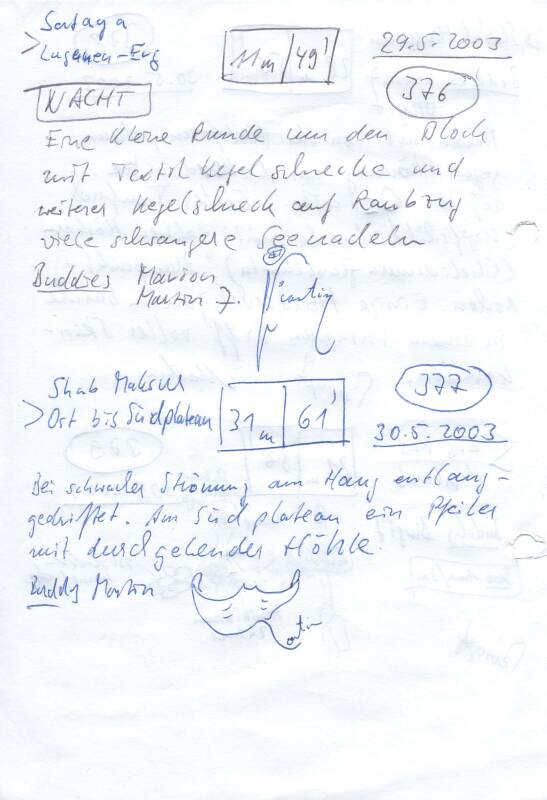 Sataga
> Lagunen-Erg
11m 49'
29.5.2003
376
NACHT
Eine kleine Runde um den Block
mit Textil Kegelschnecke und
weiterer Kegelschneck auf Raubzug
viele schwangere Seenadeln
Buddies Marion
Martin J.
Martin
Shab Maksur
> Ost bis Südplateau
31m 61'
377
30.5.2003
Bei schwacher Strömung am Hang entlang-
gedriftet. Am Südplateau ein Pfeiler
mit durchgehender Höhle.
Buddy Martin